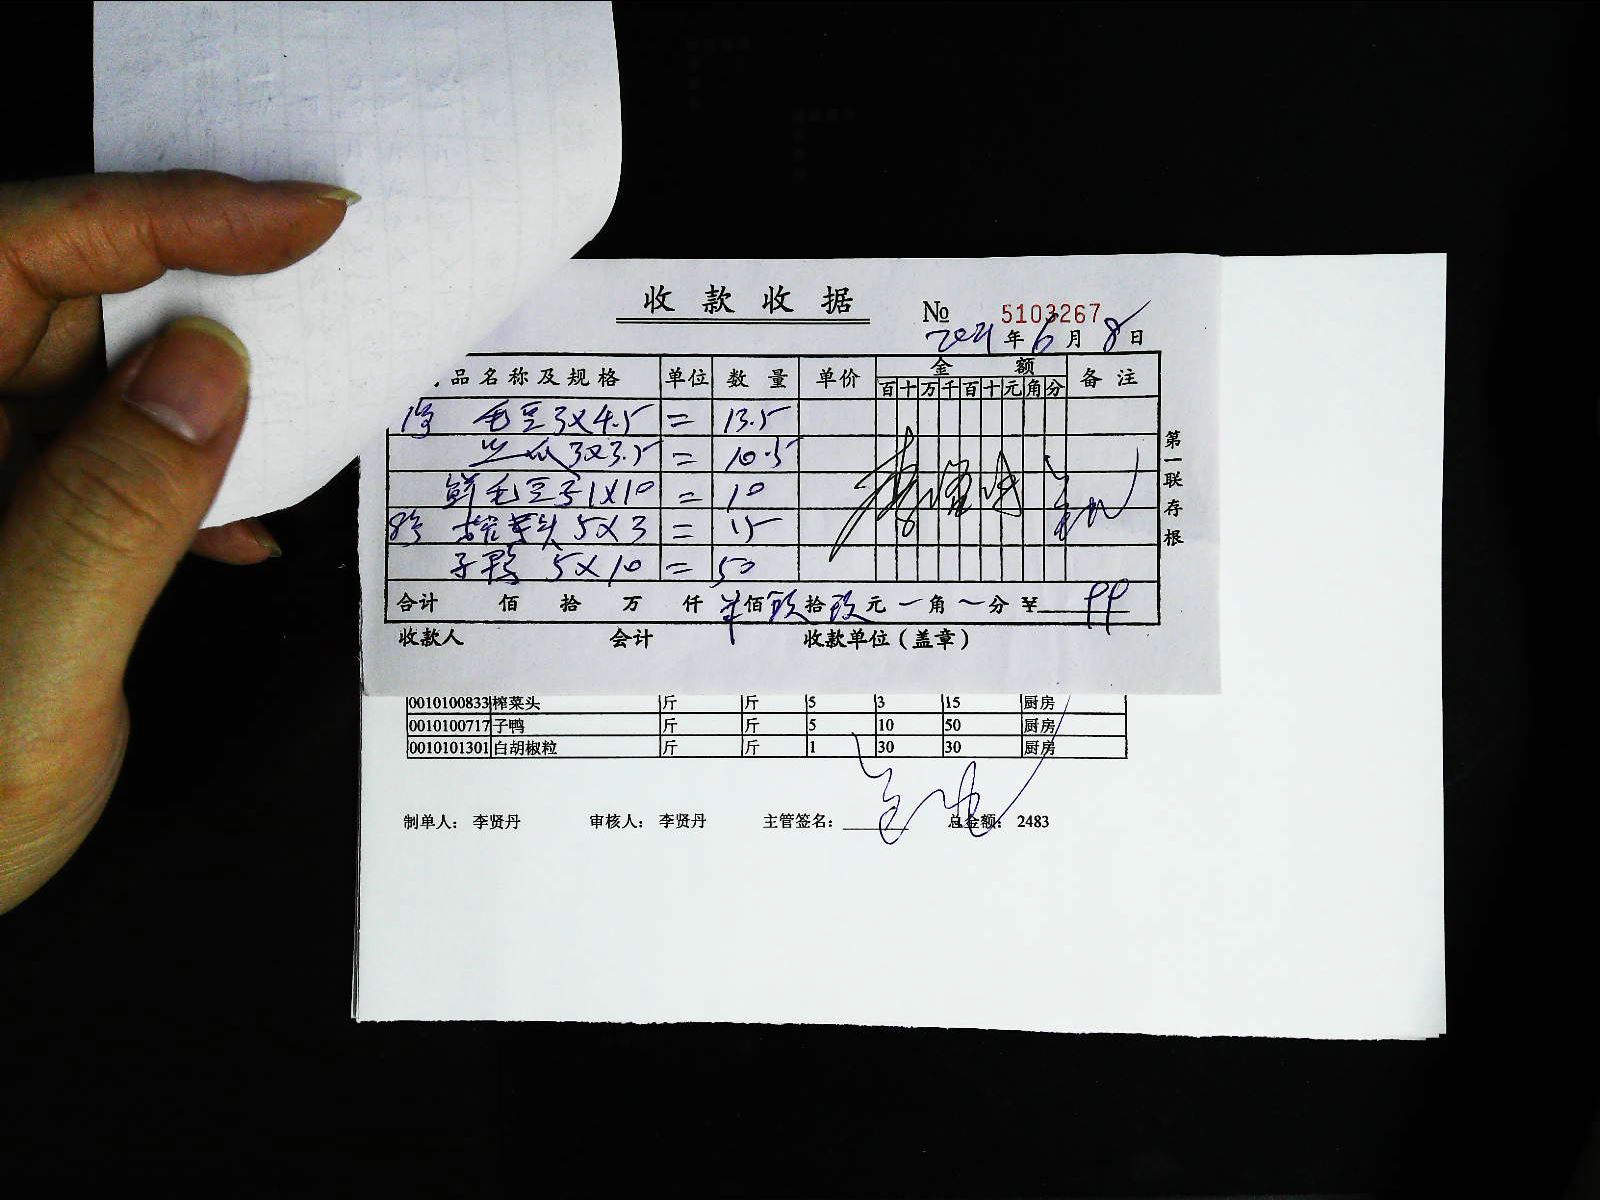 收款收据
№ 5103267
2021年6月8日
品名称及规格 单位 数量 单价 金额 备注
百十万千百十元角分
毛豆3×4.5 = 13.5
丝瓜3×3.5 = 10.5
鲜毛豆子1×10 = 10
8号 榨菜头 5×3 = 15
子鸭 5×10 = 50
第一联存根
合计 佰 拾 万 仟 佰玖拾玖元 角 分 ¥ 99
收款人 会计 收款单位(盖章)
0010100833 榨菜头 斤 斤 5 3 15 厨房
0010100717 子鸭 斤 斤 5 10 50 厨房
0010101301 白胡椒粒 斤 斤 1 30 30 厨房
制单人: 李贤丹 审核人: 李贤丹 主管签名: 总金额: 2483